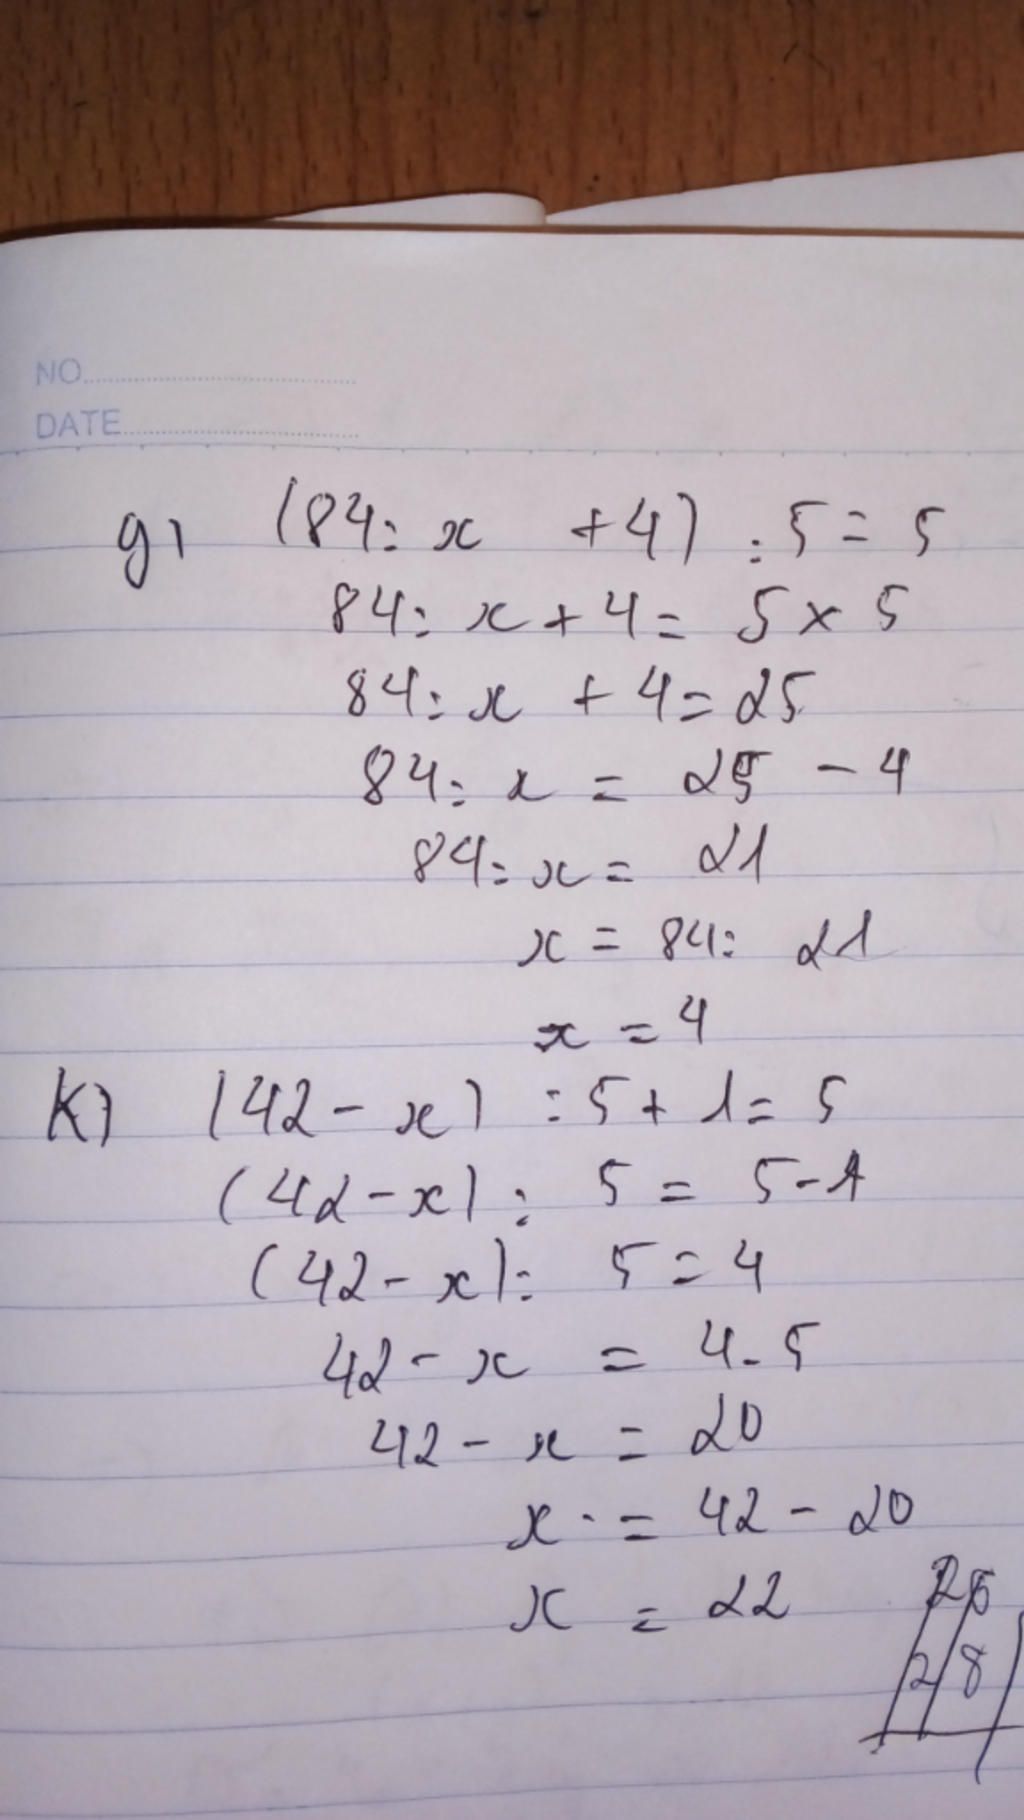 NO
DATE
g) (84: x + 4) : 5 = 5
84: x + 4 = 5 x 5
84: x + 4 = 25
84: x = 25 - 4
84: x = 21
x = 84: 21
x = 4
K) (42 - x) : 5 + 1 = 5
(42 - x) : 5 = 5 - 1
(42 - x) : 5 = 4
42 - x = 4.5
42 - x = 20
x = 42 - 20
x = 22
28